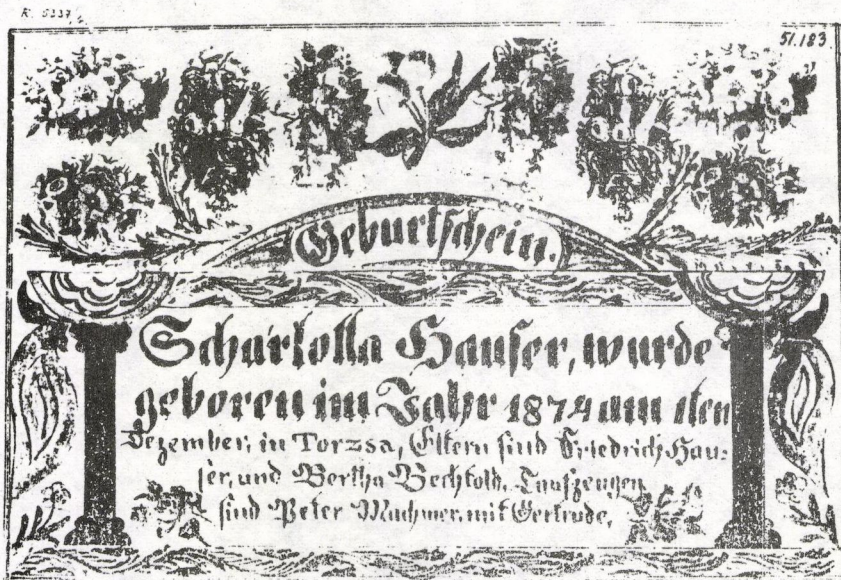 R. 5237/
51.183
Geburtschein.
Scharlolla Hauser, wurde
geboren im Jahr 1874 am 1ten
Dezember, in Torzsa, Eltern sind Friedrich Hau-
ser, und Bertha Bechtold, Taufzeugen
sind Peter Machmer, mit Gertrude,